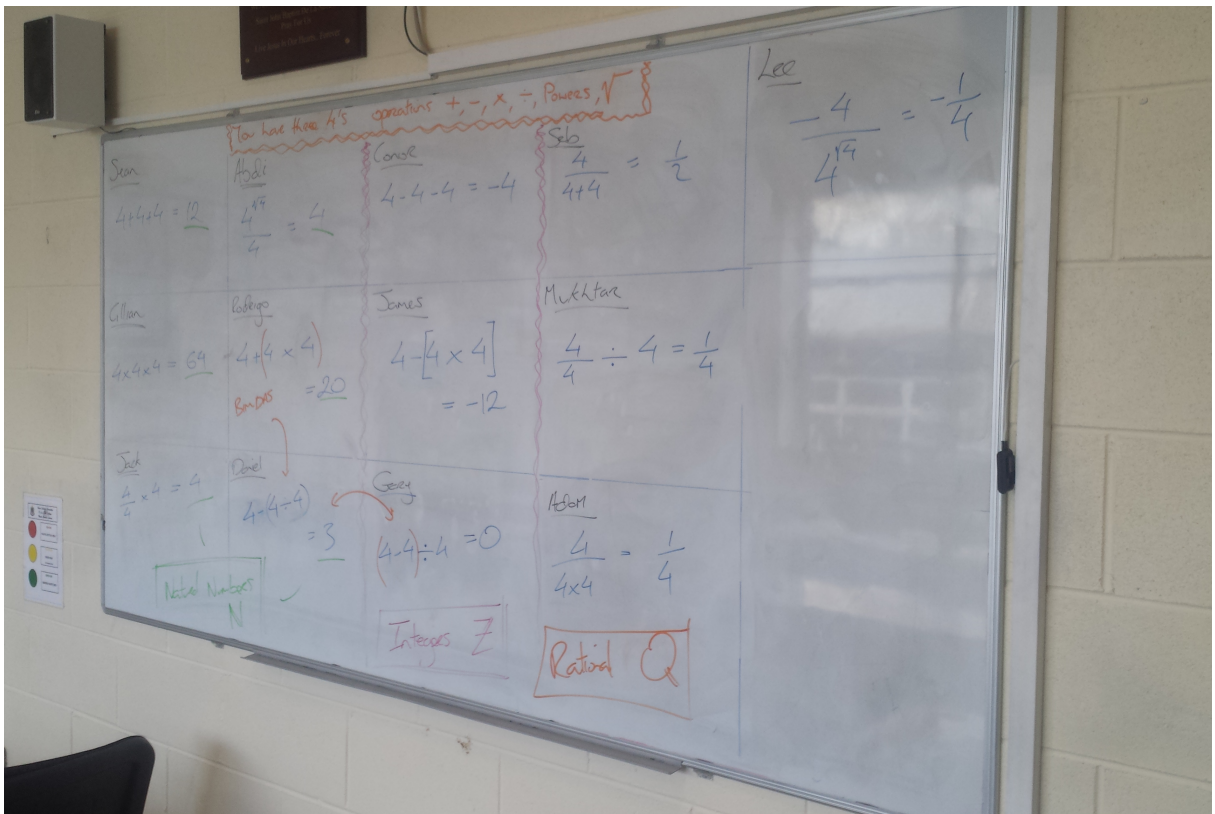 You have three 4's operations +, -, ×, ÷, Powers, √
Sean
4+4+4 = 12
Abdi
4^√4 / 4 = 4
Conor
4-4-4 = -4
Seb
4 / 4+4 = 1/2
Lee
-4 / 4^√4 = -1/4
Cillian
4×4×4 = 64
Rodrigo
4+(4 × 4)
= 20
BIMDAS
James
4-[4 × 4]
= -12
Mukhtar
4/4 ÷ 4 = 1/4
Jack
4/4 × 4 = 4
Daniel
4-(4÷4)
= 3
(4-4)÷4 = 0
Adam
4 / 4×4 = 1/4
Natural Numbers
N
Integers Z
Rational Q